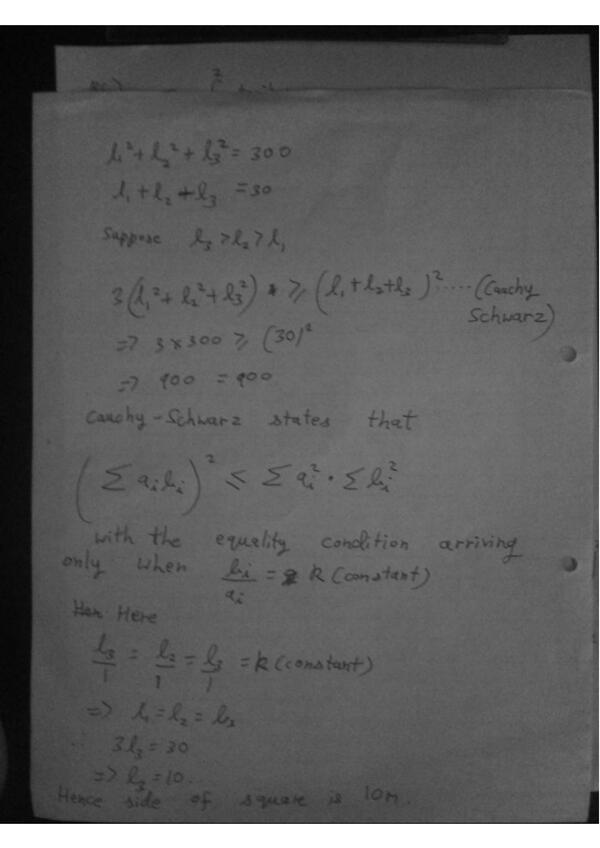 l₁²+l₂²+l₃²=300
l₁+l₂+l₃ =30
Suppose l₃>l₂>l₁
3(l₁²+l₂²+l₃²) ≥ (l₁+l₂+l₃)².....(Cauchy
Schwarz)
=> 3×300 ≥ (30)²
=> 900 = 900
Cauchy-Schwarz states that
(∑ aᵢbᵢ)² ≤ ∑ aᵢ² · ∑ bᵢ²
with the equality condition arriving
only when bᵢ/aᵢ = k (constant)
Here
l₃/1 = l₂/1 = l₃/1 = k (constant)
=> l₁=l₂=l₃
∴ 3l₃=30
=> l₃=10.
Hence side of square is 10m.